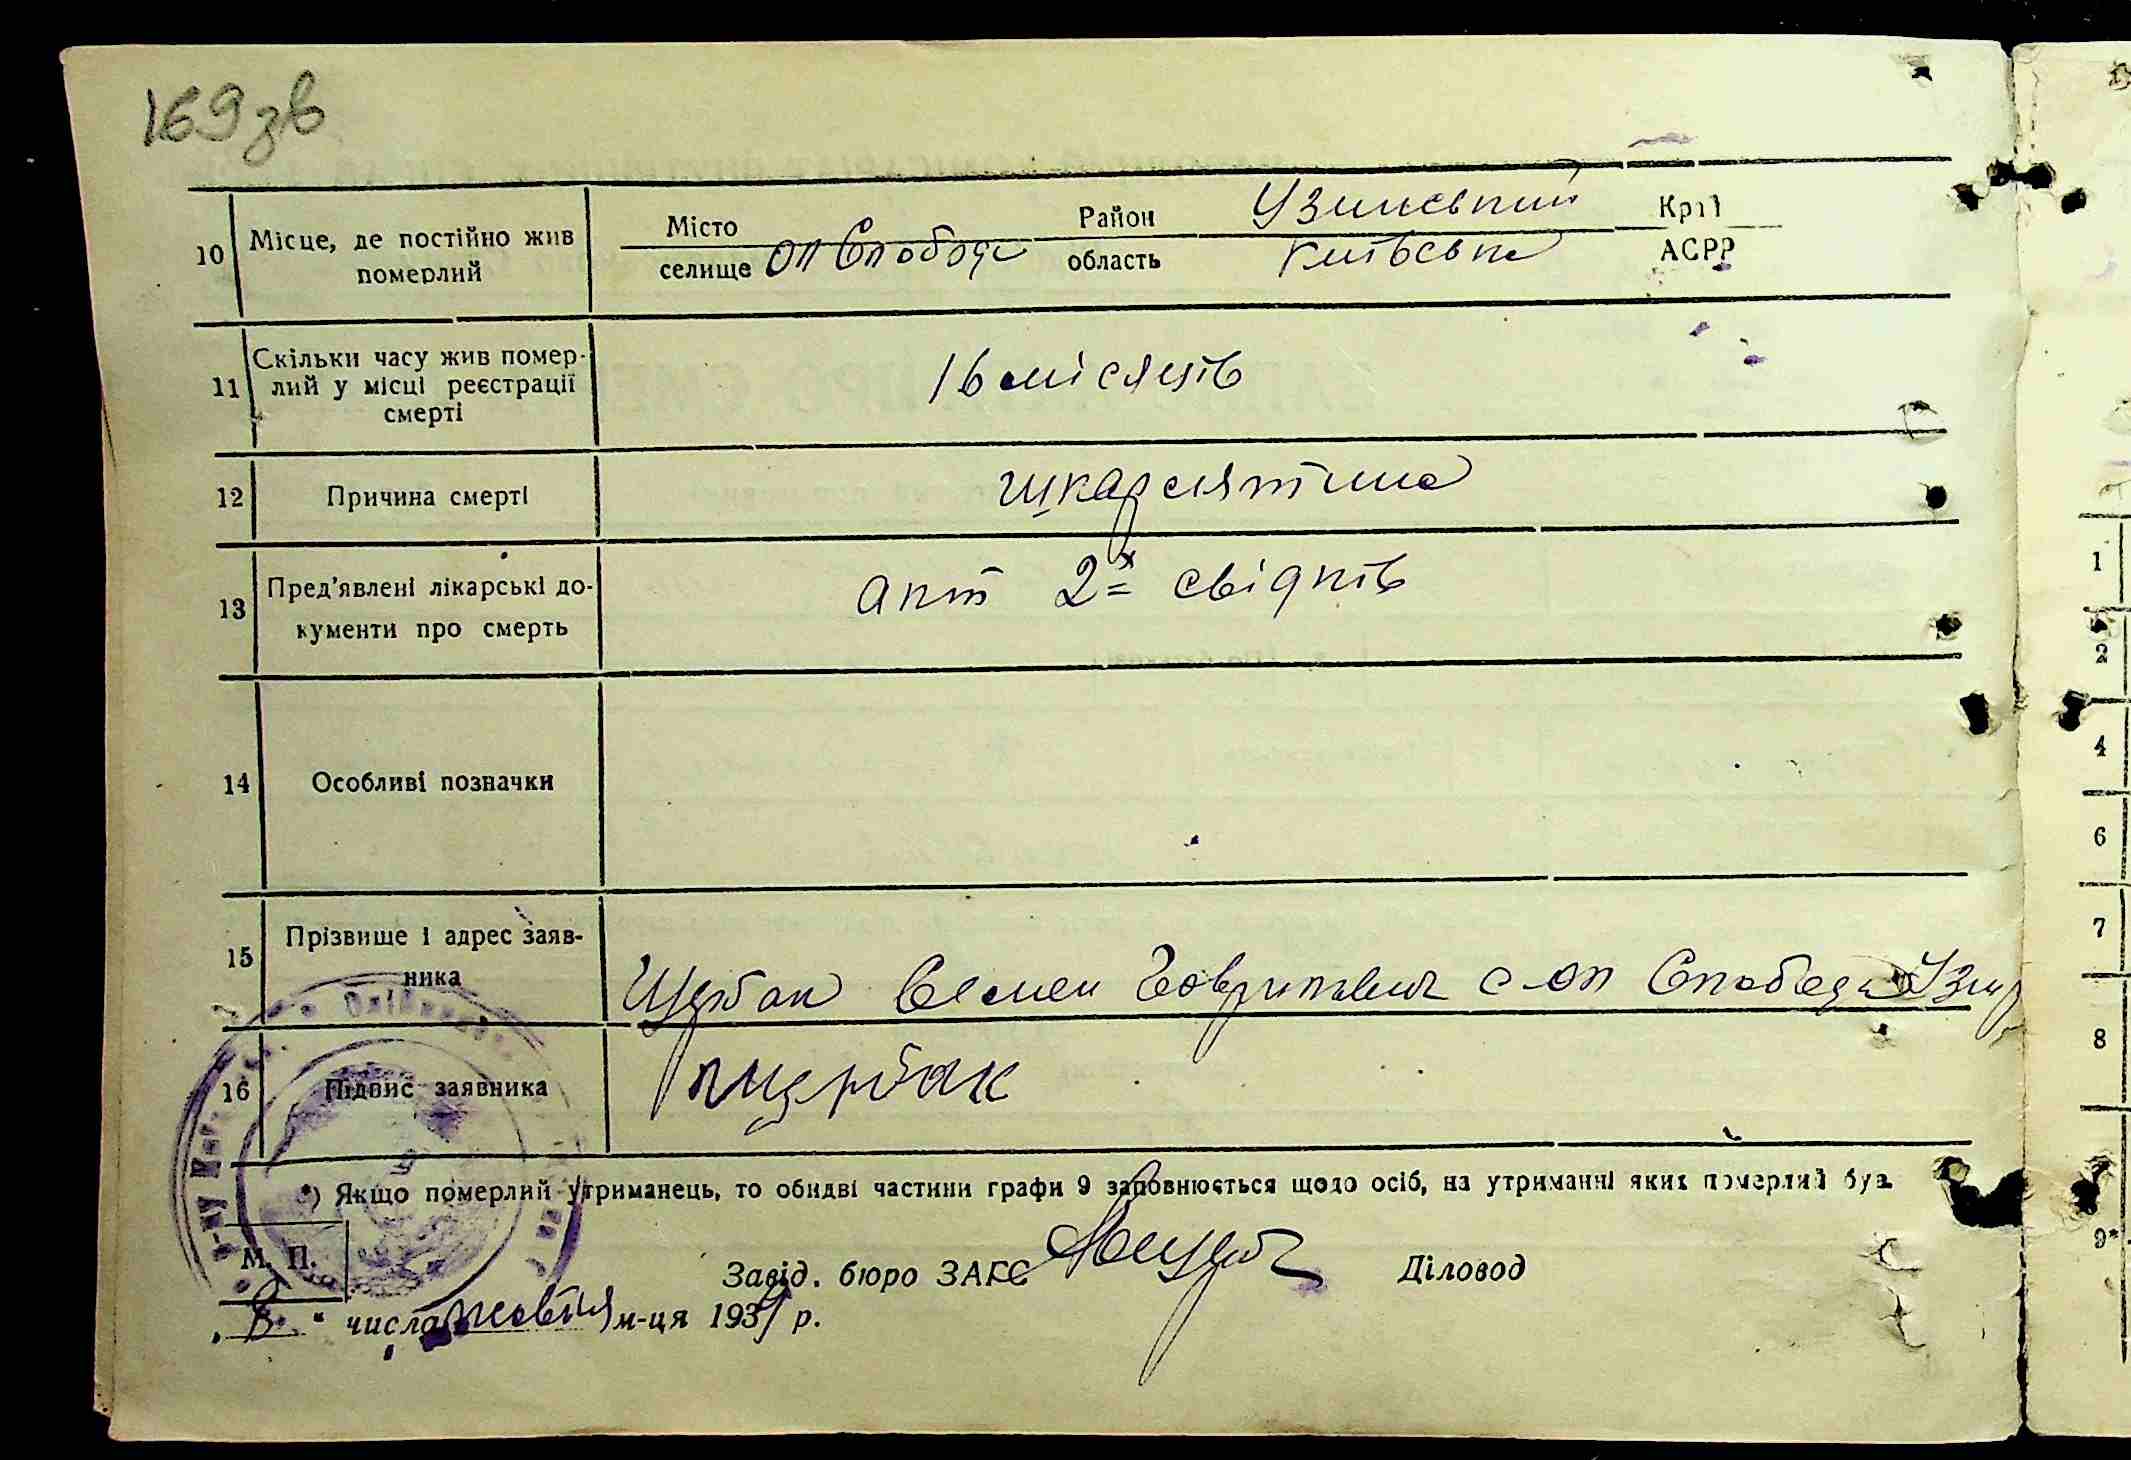 169 зв
10 Місце, де постійно жив померлий
Місто селище Ол Слобода Район Узинський область Київська Край АСРР
11 Скільки часу жив помер-
лий у місці реєстрації
смерті
16 місяців
12 Причина смерті шкарлятина
13 Пред'явлені лікарські до-
кументи про смерть
акт 2х свідків
14 Особливі позначки
15 Прізвище і адрес заяв-
ника
Щербак Семен Гаврилович с Ол Слобода Узин
16 Підпис заявника Щербак
*) Якщо померлий утриманець, то обидві частини графи 9 заповнюється щодо осіб, на утриманні яких померлий був
М. П.
Завід. бюро ЗАГС Діловод
„ 8 " числа жовтня м-ця 193 р.
1
2
4
6
7
8
9*